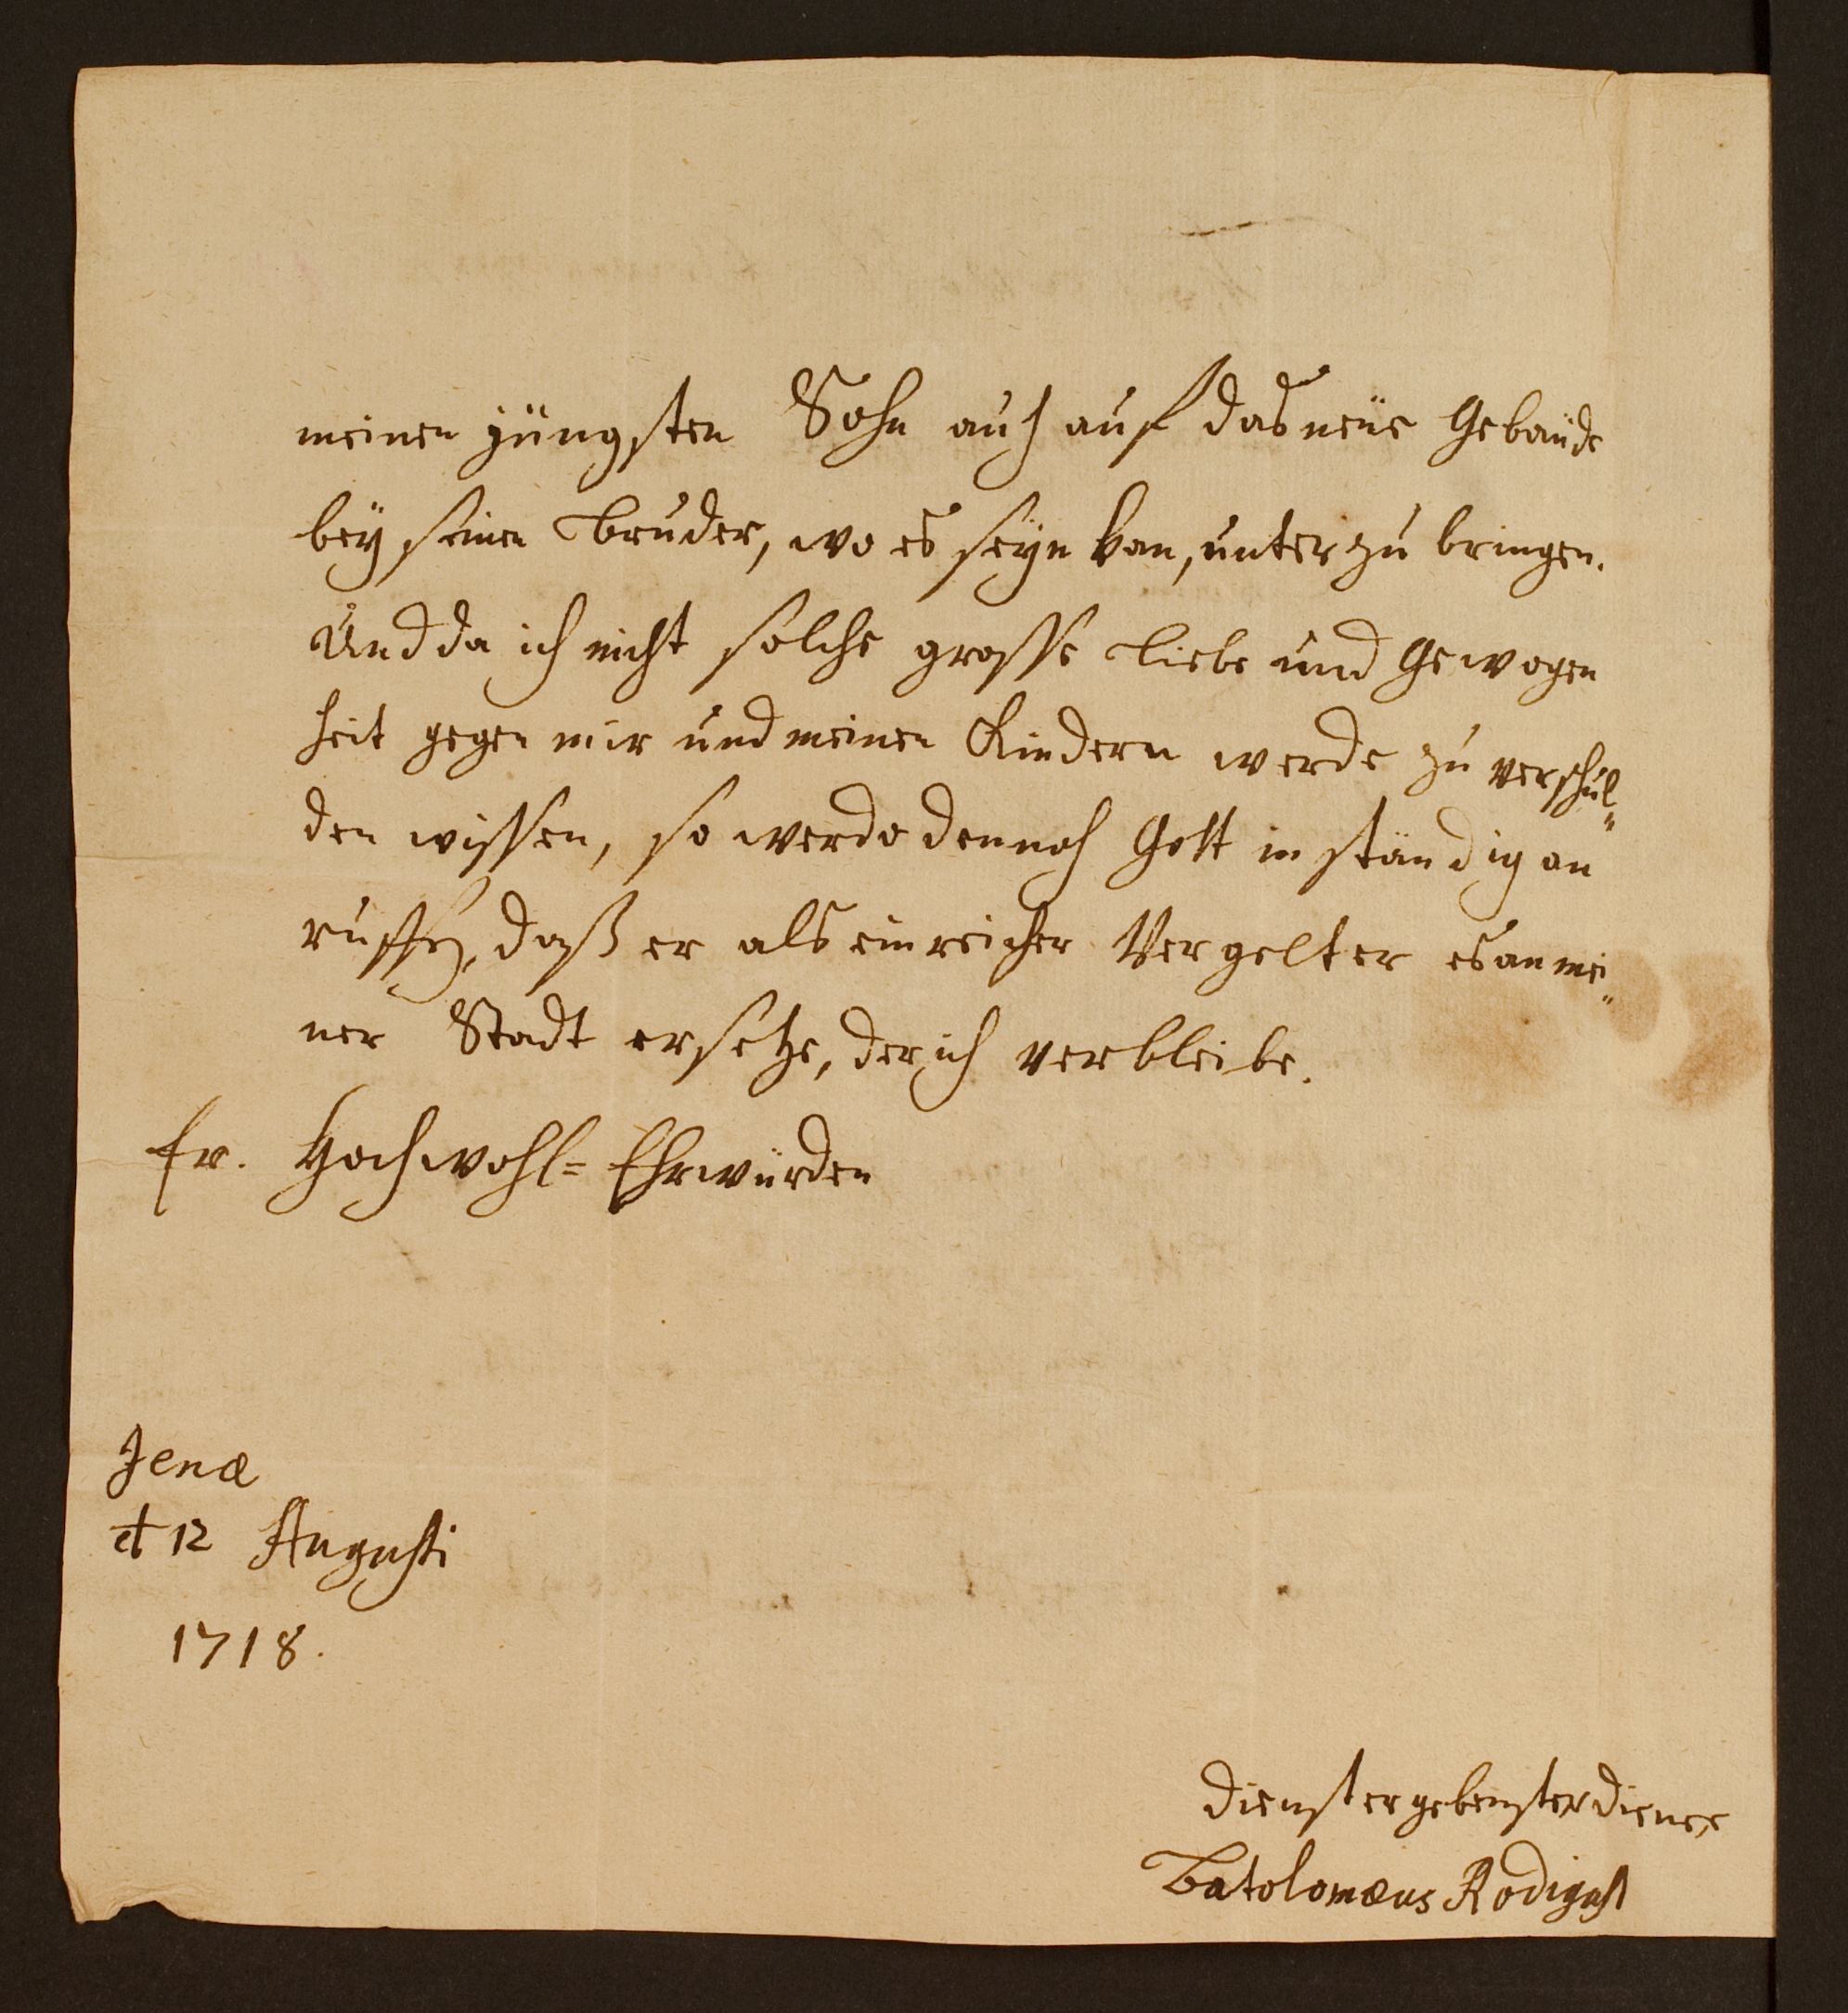 meinen jüngsten Sohn auch auf das neüe Gebäude
bey seinen Bruder, wo es seyn kan, unter zu bringen.
Und da ich nicht solche grosse Liebe und Gewogen
heit gegen mir und meinen Kindern werde zu verschul„
den wissen, so werde dennoch Gott inständig an
ruffen, daß er als ein reicher Vergelter es an mei„
ner Stadt ersetze, der ich verbleibe.
Ew. Hochwohl= Ehrwürden
Jenæ
d 12 Augusti
1718.
Dienstergebenster Diener
Batolomæus Rodigast